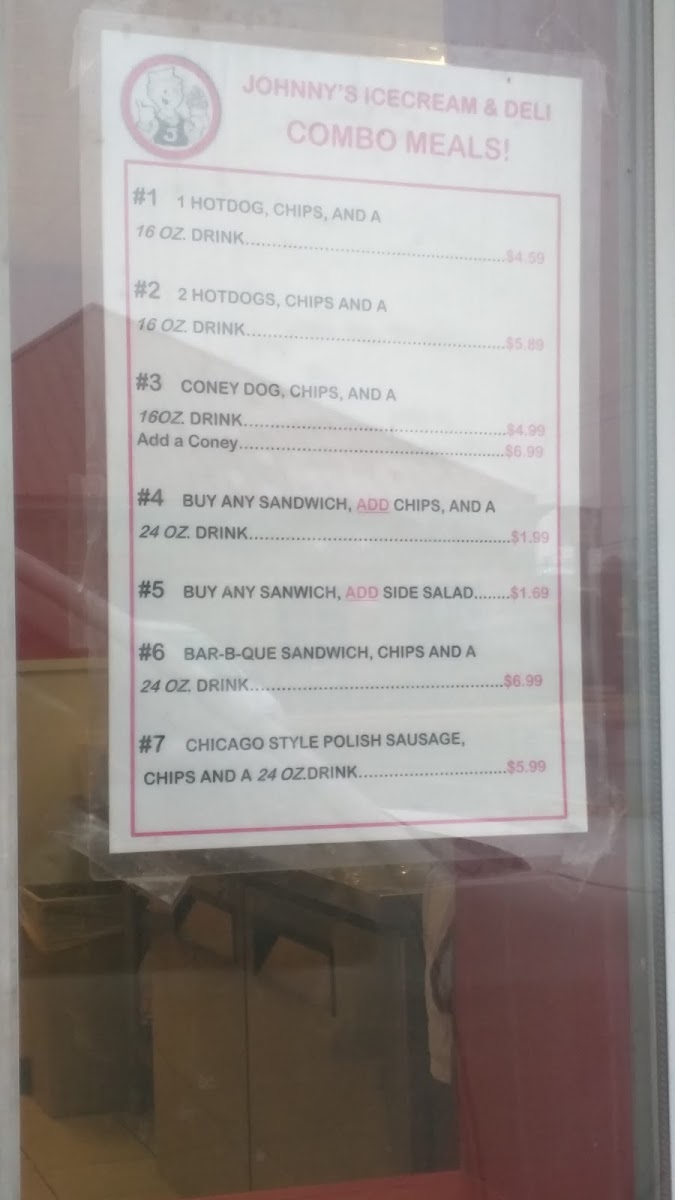 JOHNNY'S ICECREAM & DELI
COMBO MEALS!
J
#1 1 HOTDOG, CHIPS, AND A
16 OZ. DRINK..................................................$4.59
#2 2 HOTDOGS, CHIPS AND A
16 OZ. DRINK..................................................$5.89
#3 CONEY DOG, CHIPS, AND A
16OZ. DRINK..................................................$4.99
Add a Coney..................................................$6.99
#4 BUY ANY SANDWICH, ADD CHIPS, AND A
24 OZ. DRINK..................................................$1.99
#5 BUY ANY SANWICH, ADD SIDE SALAD........$1.69
#6 BAR-B-QUE SANDWICH, CHIPS AND A
24 OZ. DRINK..................................................$6.99
#7 CHICAGO STYLE POLISH SAUSAGE,
CHIPS AND A 24 OZ.DRINK.............................$5.99